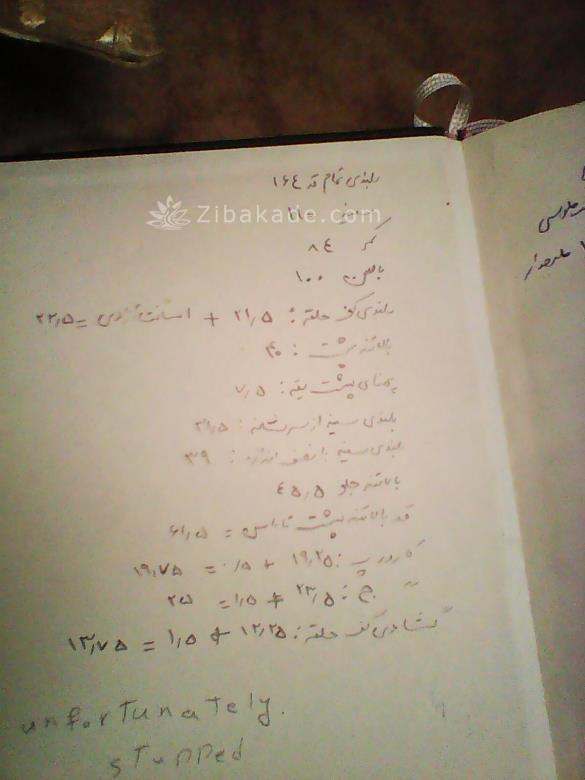 بلندی تمام قد ۱۶۴
Zibakade.com
کمر ۸۴
باسن ۱۰۰
بلندی کف حلقه: ۲۱٫۵ + = ۲۲٫۵
بالاتنه پشت: ۴۰
پهنای پشت یقه: ۷٫۵
بلندی سینه از سرشانه:
بلندی سینه با نصف: ۳۹
بالاتنه جلو ۴۵٫۵
قد بالاتنه پشت تا باسن = ۶۱٫۵
کارور پ: ۱۹٫۲۵ + ۰٫۵ = ۱۹٫۷۵
" ج: ۲۳٫۵ + ۱٫۵ = ۲۵
گشادی کف حلقه: ۱۲٫۲۵ + ۱٫۵ = ۱۳٫۷۵
unfortunately.
stupped